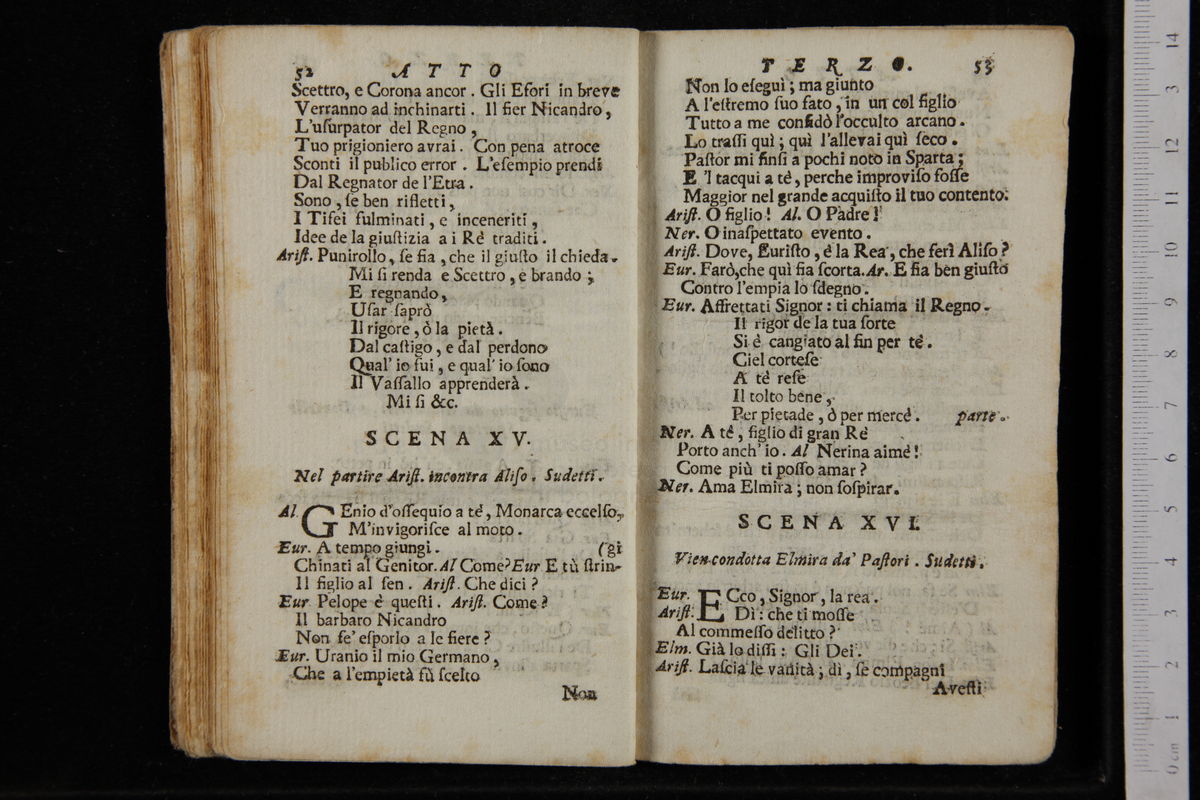 52 ATTO
Scettro, e Corona ancor. Gli Efori in breve
Verranno ad inchinarti. Il fier Nicandro,
L'uſurpator del Regno,
Tuo prigioniero avrai. Con pena atroce
Sconti il publico error. L'eſempio prendi
Dal Regnator de l'Etra.
Sono, ſe ben rifletti,
I Tifei fulminati, e inceneriti,
Idee de la giuſtizia a i Rè traditi.
Ariſt. Punirollo, ſe fia, che il giuſto il chieda.
Mi ſi renda e Scettro, e brando;
E regnando,
Uſar ſaprò
Il rigore, ò la pietà.
Dal caſtigo, e dal perdono
Qual' io fui, e qual' io ſono
Il Vaſſallo apprenderà.
Mi ſi &c.
SCENA XV.
Nel partire Ariſt. incontra Aliſo. Sudetti.
Al. GEnio d'oſſequio a tè, Monarca eccelſo,
M'invigoriſce al moto.
Eur. A tempo giungi. (gi
Chinati al Genitor. Al Come? Eur E tù ſtrin-
Il figlio al ſen. Ariſt. Che dici?
Eur Pelope è queſti. Ariſt. Come?
Il barbaro Nicandro
Non fe' eſporlo a le fiere?
Eur. Uranio il mio Germano,
Che a l'empietà fù ſcelto
Non
TERZO. 53
Non lo eſeguì; ma giunto
A l'eſtremo ſuo fato, in un col figlio
Tutto a me confidò l'occulto arcano.
Lo traſſi quì; quì l'allevai quì ſeco.
Paſtor mi finſi a pochi noto in Sparta;
E 'l tacqui a tè, perche improviſo foſſe
Maggior nel grande acquiſto il tuo contento.
Ariſt. O figlio! Al. O Padre!
Ner. O inaſpettato evento.
Ariſt. Dove, Euriſto, è la Rea, che ferì Aliſo?
Eur. Farò, che quì fia ſcorta. Ar. E fia ben giuſto
Contro l'empia lo ſdegno.
Eur. Affrettati Signor: ti chiama il Regno.
Il rigor de la tua ſorte
Si è cangiato al fin per tè.
Ciel corteſe
A tè reſe
Il tolto bene,
Per pietade, ò per mercè. parte.
Ner. A tè, figlio di gran Rè
Porto anch' io. Al Nerina aimè!
Come più ti poſſo amar?
Ner. Ama Elmira; non ſoſpirar.
SCENA XVI.
Vien condotta Elmira da' Paſtori. Sudetti.
Eur. ECco, Signor, la rea.
Ariſt. Dì: che ti moſſe
Al commeſſo delitto?
Elm. Già lo diſſi: Gli Dei.
Ariſt. Laſcia le vanità; dì, ſe compagni
Aveſti
0 cm 1 2 3 4 5 6 7 8 9 10 11 12 3 14